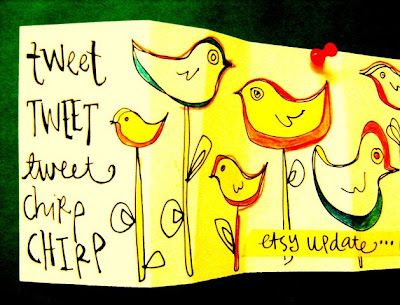 tweet
TWEET
tweet
chirp
CHIRP
etsy update...